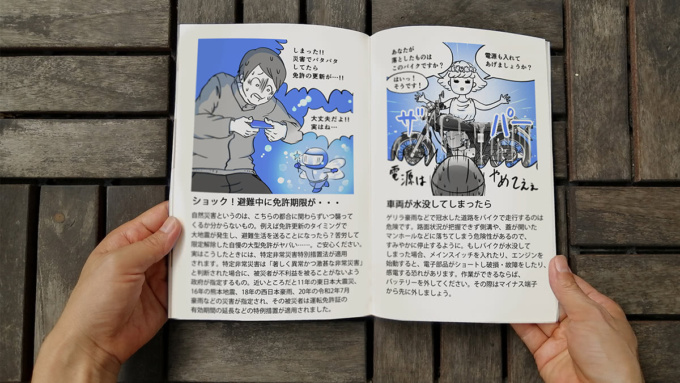 しまった!!
災害でバタバタ
してたら
免許の更新が…!!
大丈夫だよ!!
実はね…
ショック！避難中に免許期限が・・・
自然災害というのは、こちらの都合に関わらずいつ襲って
くるか分からないもの。例えば免許更新のタイミングで
大地震が発生し、避難生活を送ることになったら？苦労して
限定解除した自慢の大型免許がヤバい……。ご安心ください。
実はこうしたときには、特定非常災害特別措置法が適用
されます。特定非常災害は「著しく異常かつ激甚な非常災害」
と判断された場合に、被災者が不利益を被ることがないよう
政府が指定するもの。近いところだと11年の東日本大震災、
16年の熊本地震、18年の西日本豪雨、20年の令和2年7月
豪雨などの災害が指定され、その被災者は運転免許証の
有効期間の延長などの特例措置が適用されました。
あなたが
落としたものは
このバイクですか？
電源も入れて
あげましょうか？
はいっ！
そうです！
ザパー
電源は
やめてぇぇ
車両が水没してしまったら
ゲリラ豪雨などで冠水した道路をバイクで走行するのは
危険です。路面状況が把握できず側溝や、蓋が開いた
マンホールなどに落ちてしまう危険性があるので、
すみやかに停止するように。もしバイクが水没して
しまった場合、メインスイッチを入れたり、エンジンを
始動すると、電子部品がショートし破損・故障をしたり、
感電する恐れがあります。作業ができるならば、
バッテリーを外してください。その際はマイナス端子
から先に外しましょう。